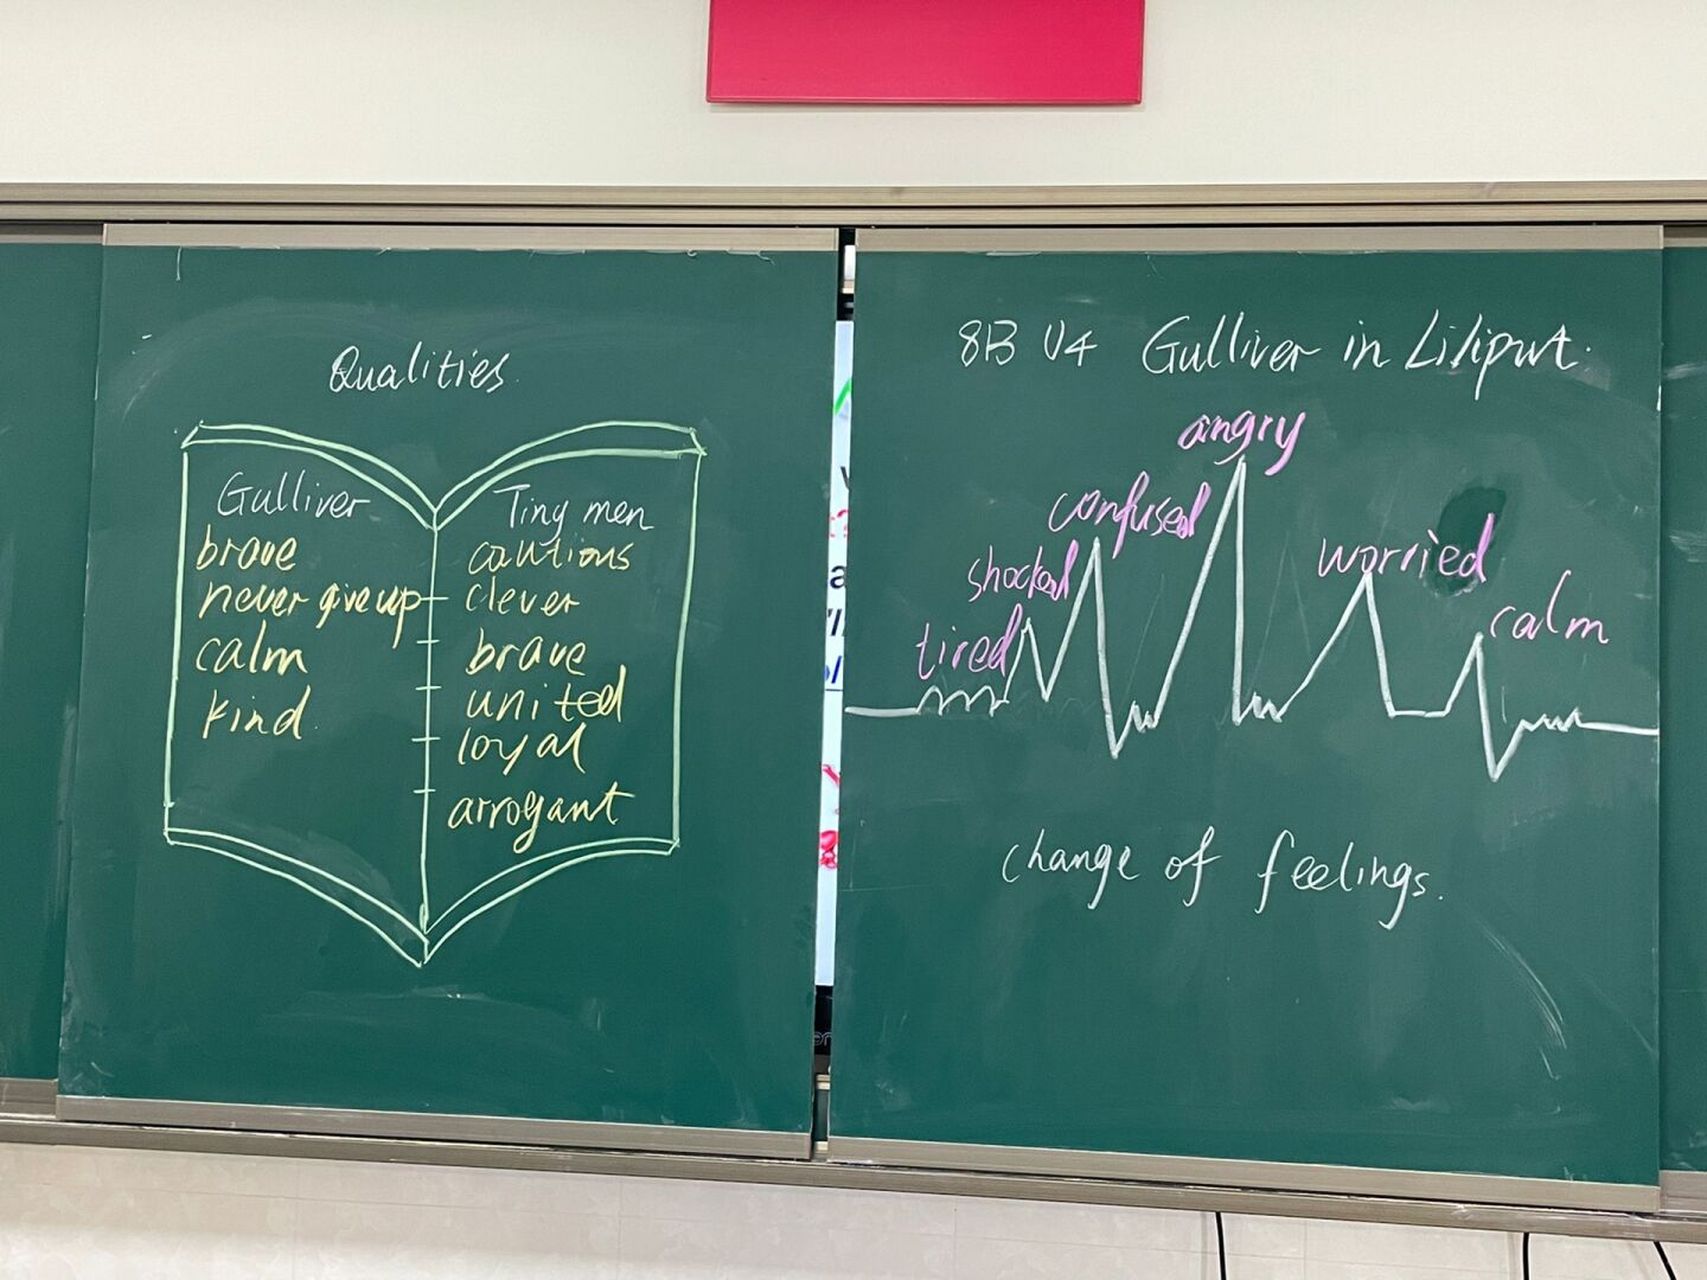 Qualities
Gulliver
brave
never give up
calm
kind.
Tiny men
cautious
clever
brave
united
loyal
arrogant
8B U4 Gulliver in Liliput.
angry
confused
shocked
worried
tired
calm
change of feelings.